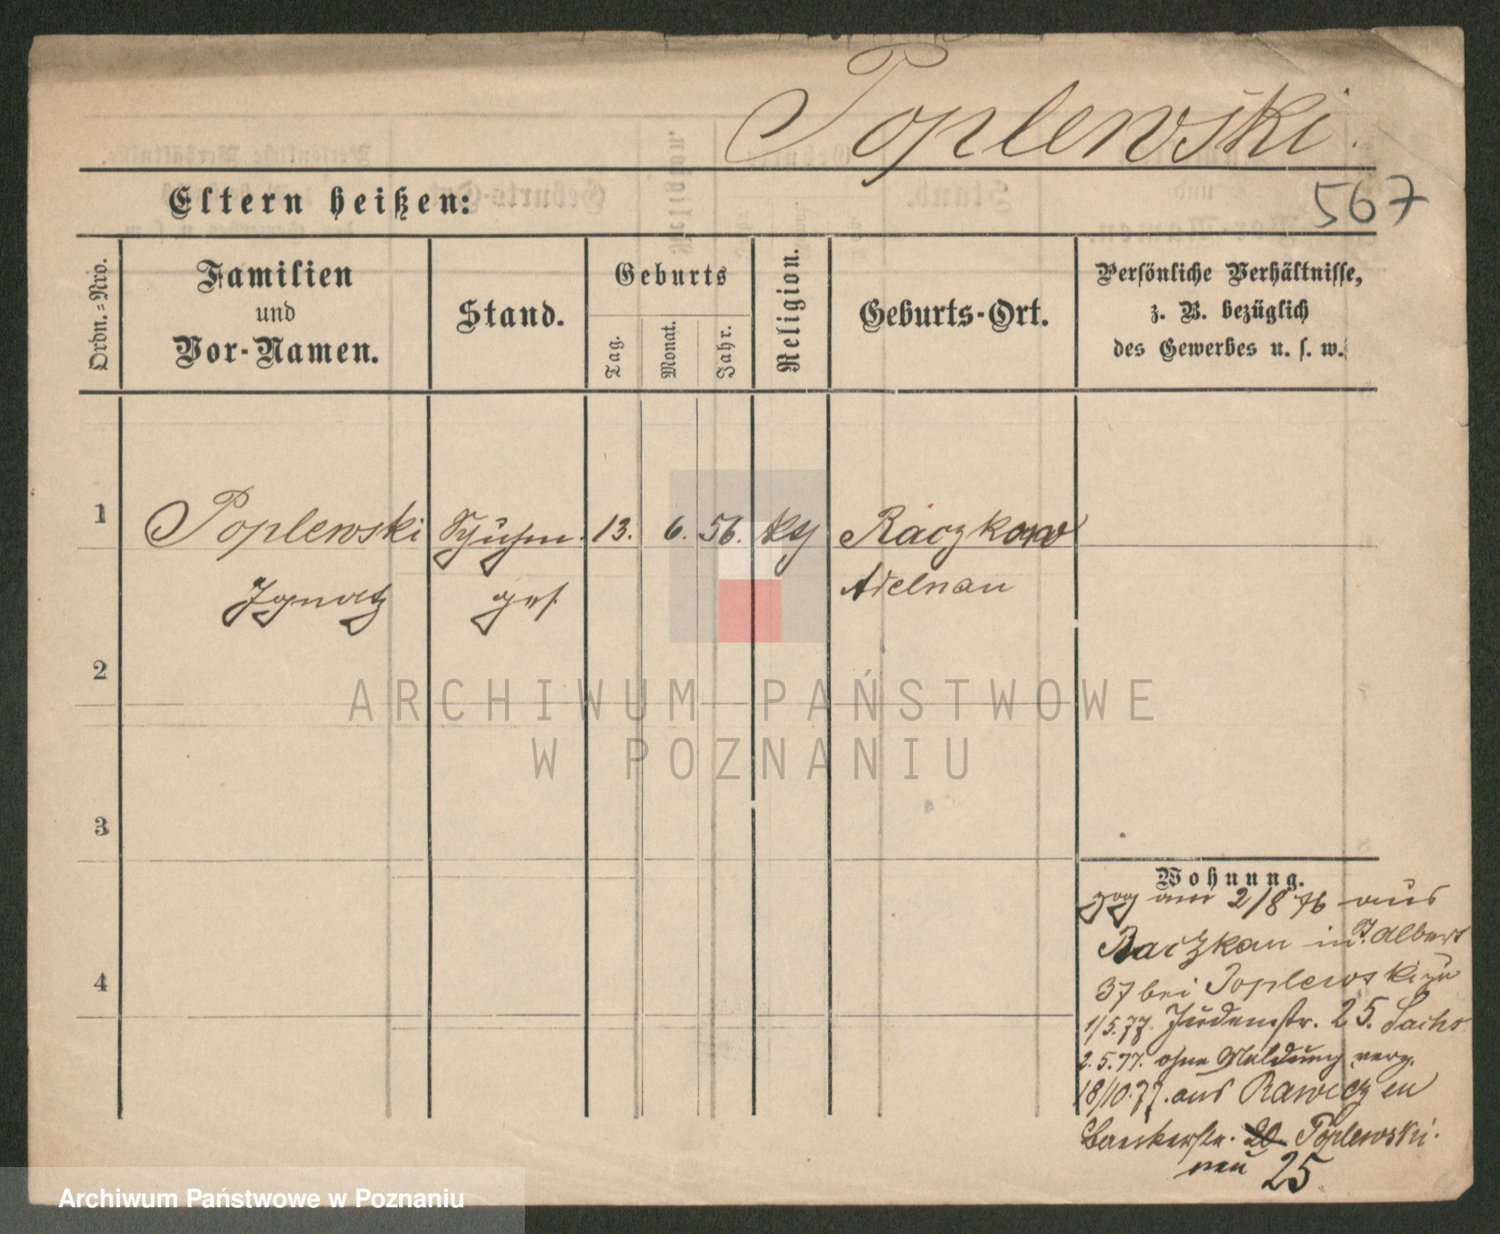 Poplewski.
567
Eltern heißen:
Ordn.-Nro.
Familien
und
Vor-Namen.
Stand.
Geburts
Tag.
Monat.
Jahr.
Religion.
Geburts-Ort.
Persönliche Verhältnisse,
z. B. bezüglich
des Gewerbes u. s. w.
1 Poplewski Schuhm. 13. 6. 56. Raczkow
Ignatz ges Adelnau
2
3
4
Wohnung.
zog am 2/8 76 aus
Raczkau in Albert
37 bei Poplewski
1/5.77. Judenstr. 25. Sachs
2.5.77. ohne Meldung verz.
18/10.77. aus Rawicz
Bankerstr. 20 Poplewski.
neu 25
ARCHIWUM PAŃSTWOWE
W POZNANIU
Archiwum Państwowe w Poznaniu